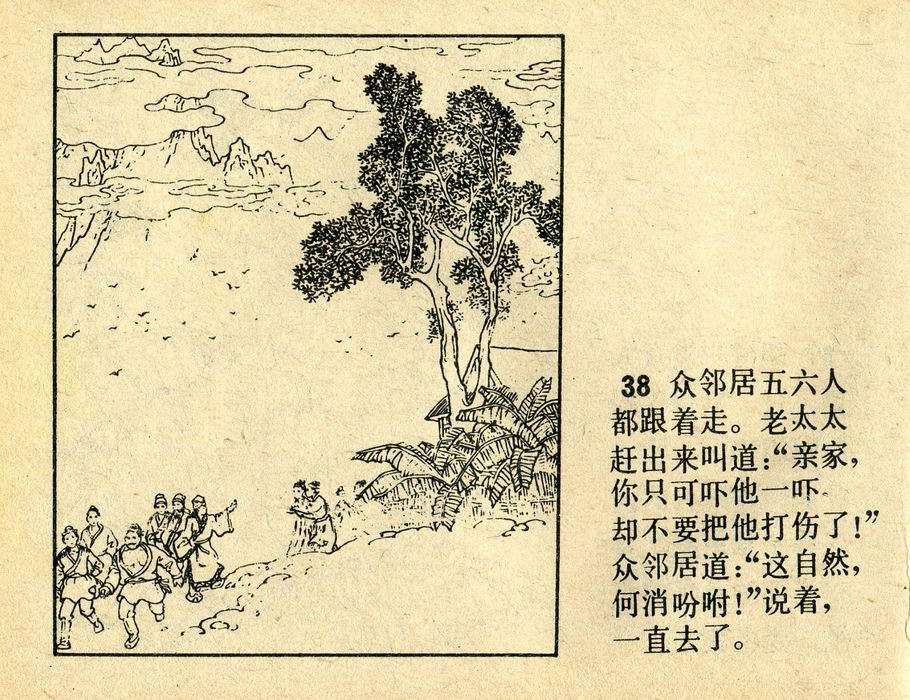 38 众邻居五六人
都跟着走。老太太
赶出来叫道:“亲家,
你只可吓他一吓.
却不要把他打伤了!”
众邻居道:“这自然,
何消吩咐!”说着,
一直去了。